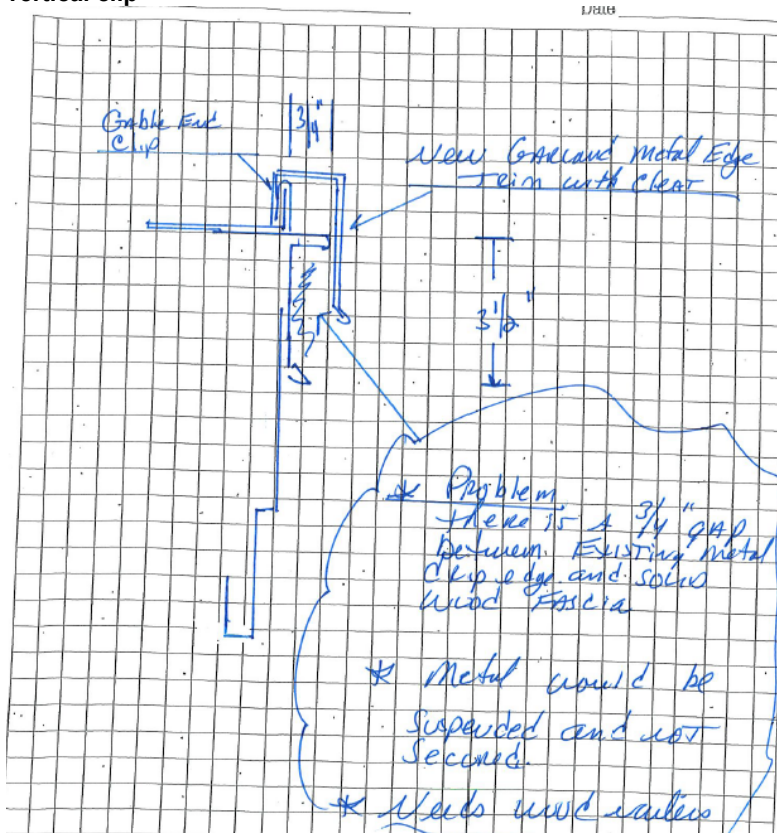 Date
Gable End
Clip
3/4"
New Garland Metal Edge
Trim with Cleat
3 1/2"
* Problem
there is A 3/4" gap
between Existing metal
drip edge and solid
wood FAScia
* Metal would be
Suspended and not
Secured.
* Needs wood nailers